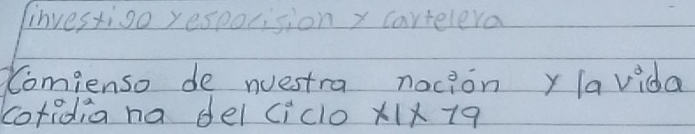 investigo y esposision y cartelera
Comienso de nuestra nación y la vida
cotidia na del ciclo XIX 19